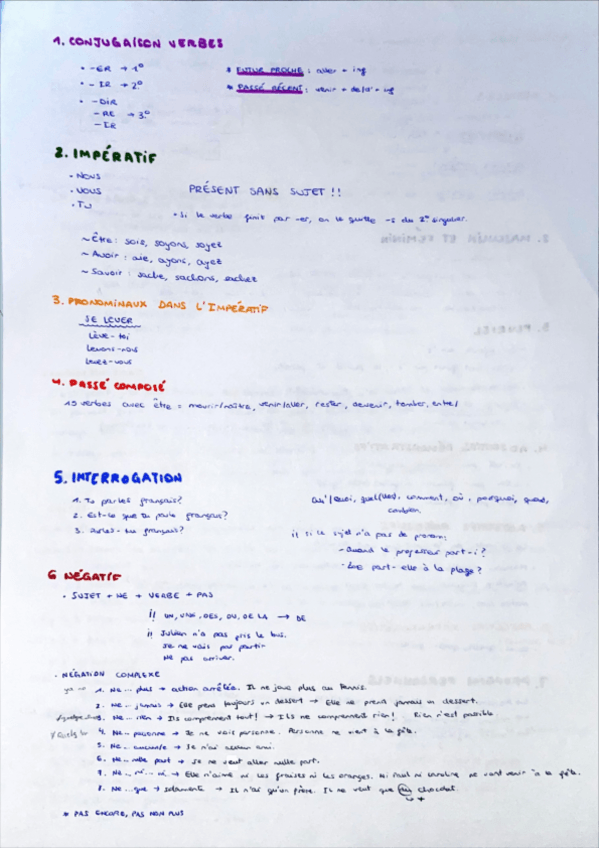 1. CONJUGAISON VERBES
• -ER → 1º
* FUTUR PROCHE : aller + inf
• -IR → 2º
* PASSÉ RÉCENT : venir + de/d' + inf
• -OIR
-RE → 3º
-IR
2. IMPÉRATIF
• NOUS
• VOUS
PRÉSENT SANS SUJET !!
• TU
• Si le verbe finit par -er, on le quitte -s du 2º singulier.
~ Être : sois, soyons, soyez
~ Avoir : aie, ayons, ayez
~ Savoir : sache, sachons, sachez
3. PRONOMINAUX DANS L'IMPÉRATIF
SE LEVER
Lève-toi
Levons-nous
Levez-vous
4. PASSÉ COMPOSÉ
15 verbes avec être = mourir/naître, venir/aller, rester, devenir, tomber, entrer
5. INTERROGATION
1. Tu parles français?
Qui/Quoi, quel(lles), comment, où, pourquoi, quand,
combien.
2. Est-ce que tu parle français?
3. Parles-tu français?
¡! si le sujet n'a pas de pronom:
- Quand le professeur part-il?
- part-elle à la plage?
6 NÉGATIF
• SUJET + NE + VERBE + PAS
¡! UN, UNE, DES, DU, DE LA → DE
¡! Julien n'a pas pris le bus.
Je ne vais pas partir
Ne pas arriver.
• NÉGATION COMPLEXE
ya no 1. Ne... plus → action arrêtée. Il ne joue plus au tennis.
2. Ne... jamais → Elle prend toujours un dessert → Elle ne prend jamais un dessert.
3. Ne... rien → Ils comprennent tout! → Ils ne comprennent rien! Rien n'est possible
4. Ne... personne → Je ne vois personne. Personne ne vient à la fête.
5. Ne... aucun/e → Je n'ai aucun ami.
6. Ne... nulle part → Je ne veut aller nulle part.
7. Ne... ni... ni → Elle n'aime ni les fraises ni les oranges. Ni Paul ni Caroline ne vont venir à la fête.
8. Ne... que → solamente → Il n'a qu'un frère. Il ne veut que chocolat.
* PAS ENCORE, PAS NON PLUS